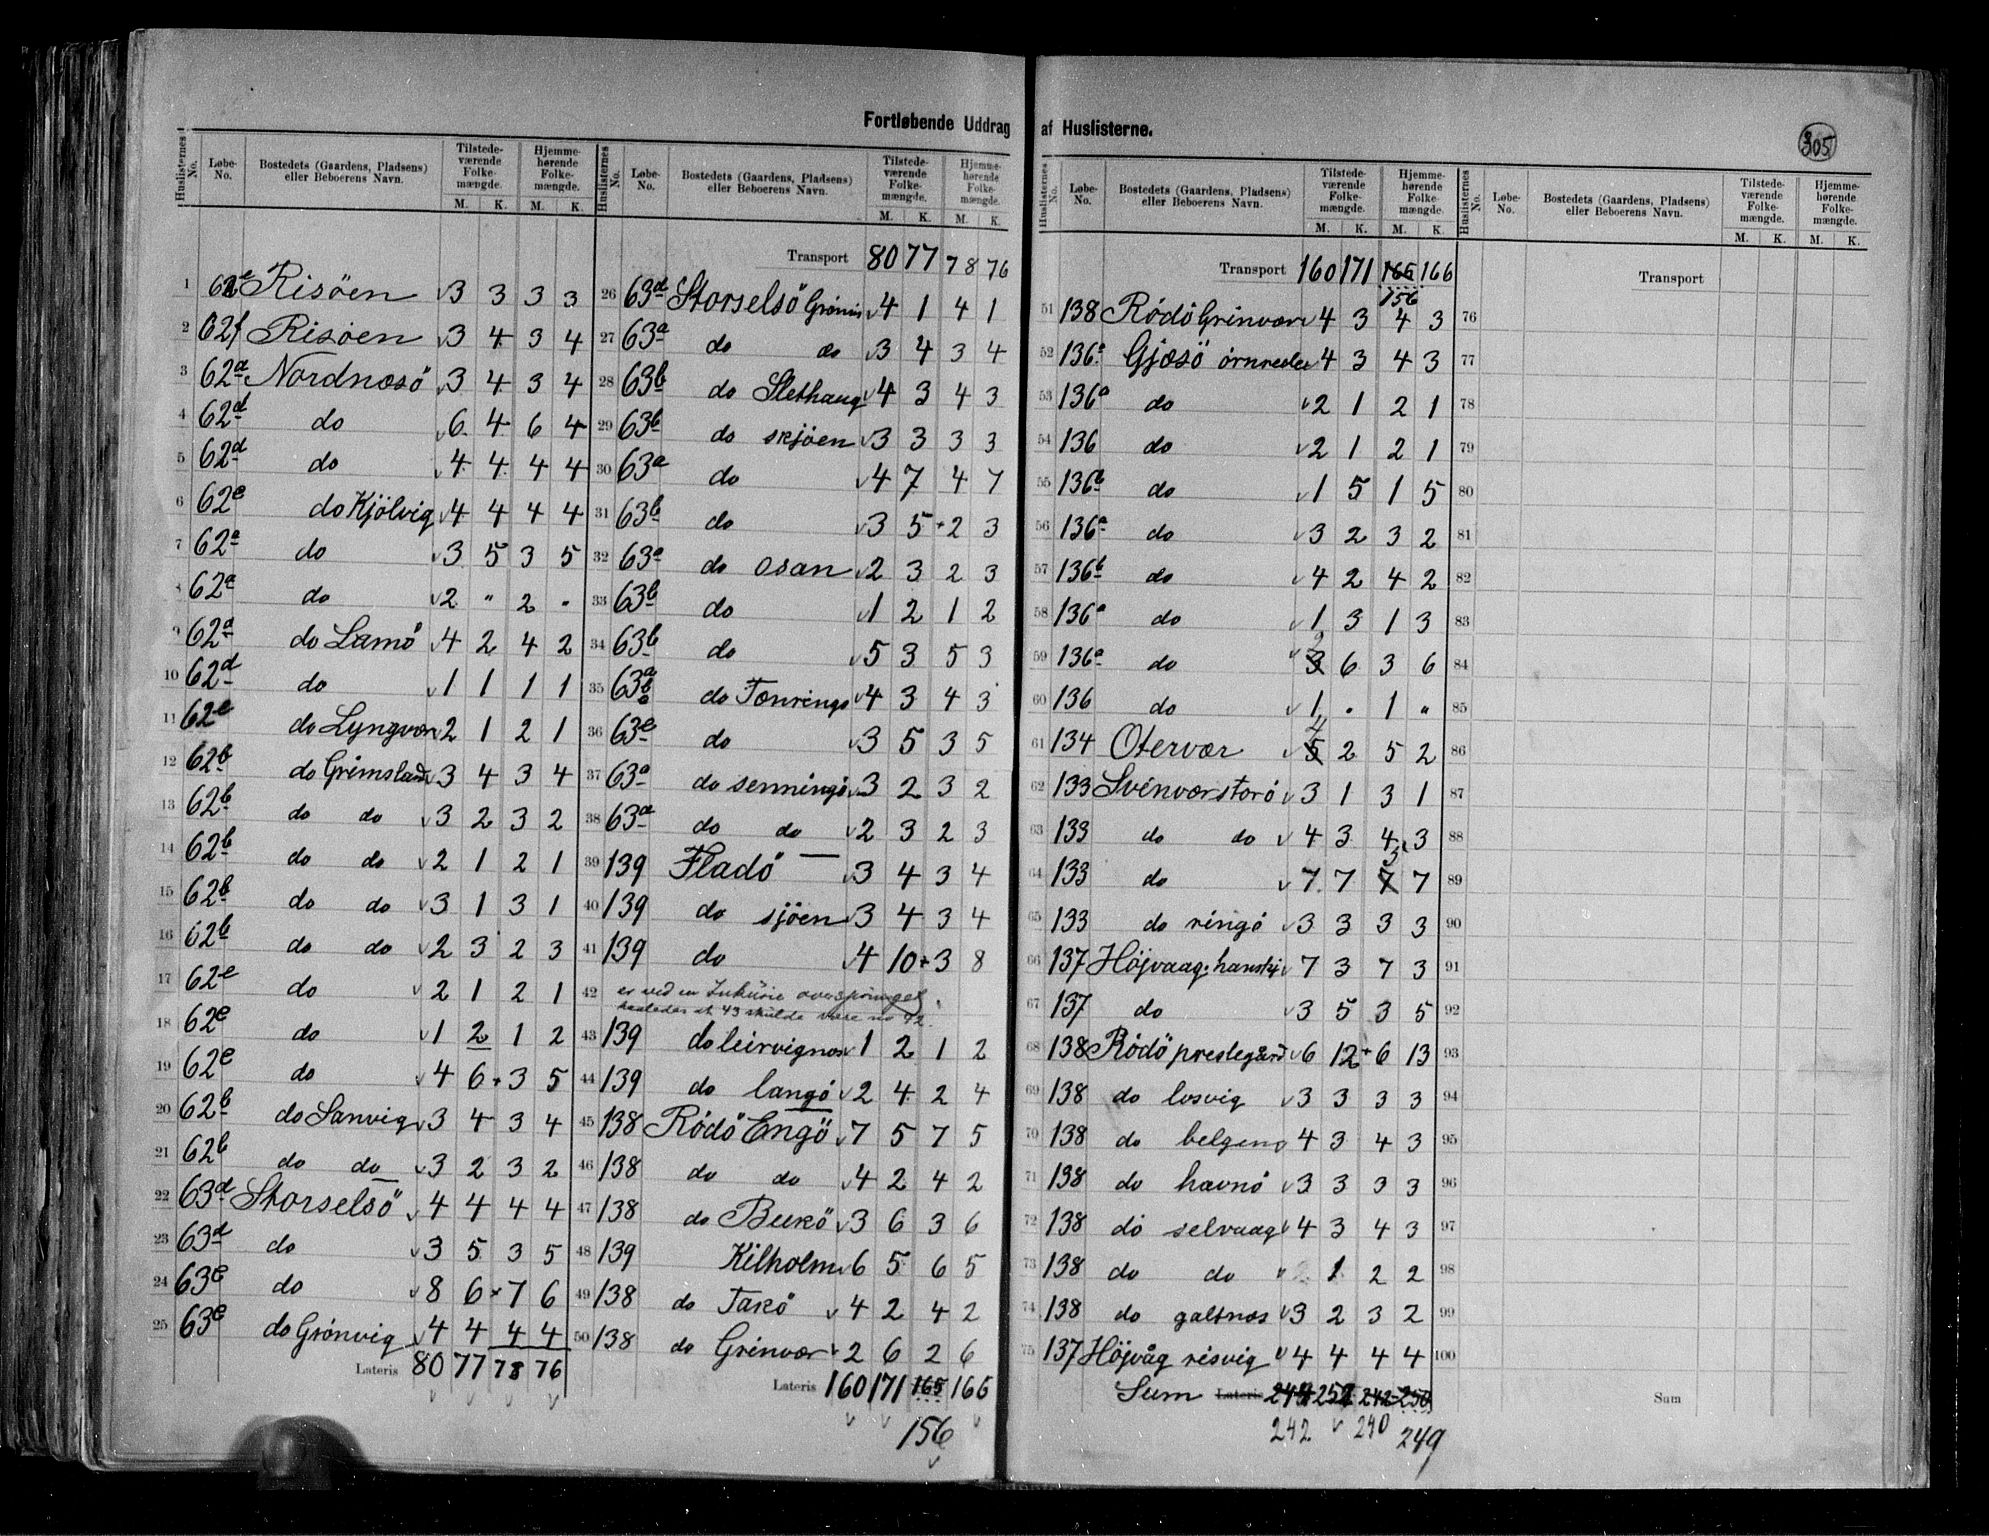 Fortløbende Uddrag af Huslisterne.
305
Huslisternes No. Løbe-No. Bostedets (Gaardens, Pladsens) eller Beboerens Navn. Tilstedeværende Folkemængde. M. K. Hjemmehørende Folkemængde. M. K.
1 62e Risöen 3 3 3 3
2 62f Risöen 3 4 3 4
3 62a Nordnæsö 3 4 3 4
4 62d do 6 4 6 4
5 62d do 4 4 4 4
6 62e do Kjölvig 4 4 4 4
7 62a do 3 5 3 5
8 62a do 2 " 2 "
9 62a do Lamö 4 2 4 2
10 62d do 1 1 1 1
11 62e do Lyngvær 2 1 2 1
12 62b do Grimsland 3 4 3 4
13 62b do do 3 2 3 2
14 62b do do 2 1 2 1
15 62b do do 3 1 3 1
16 62b do do 2 3 2 3
17 62e do 2 1 2 1
18 62e do 1 2 1 2
19 62e do 4 6 + 3 5
20 62b do Sanvig 3 4 3 4
21 62b do do 3 2 3 2
22 63d Storselsö 4 4 4 4
23 63d do 3 5 3 5
24 63e do 8 6 + 7 6
25 63e do Grönvig 4 4 4 4
Lateris 80 77 78 76
Huslisternes No. Løbe-No. Bostedets (Gaardens, Pladsens) eller Beboerens Navn. Tilstedeværende Folkemængde. M. K. Hjemmehørende Folkemængde. M. K.
Transport 80 77 78 76
26 63d Storselsö 4 1 4 1
27 63a do do 3 4 3 4
28 63b do Slethaug 4 3 4 3
29 63b do skjöen 3 3 3 3
30 63a do 4 7 4 7
31 63b do 3 5 + 2 3
32 63a do osan 2 3 2 3
33 63b do 1 2 1 2
34 63b do 5 3 5 3
35 63a b do 4 3 4 3
36 63e do 3 5 3 5
37 63a do senningö 3 2 3 2
38 63a do do 2 3 2 3
39 139 Fladö 3 4 3 4
40 139 do sjöen 3 4 3 4
41 139 do 4 10 + 3 8
42 er ved en Inkurie oversprunget
saaledes at 43 skulde være no 42.
43 139 do leirvignes 1 2 1 2
44 139 do langö 2 4 2 4
45 138 Rödö Engö 7 5 7 5
46 138 do do 4 2 4 2
47 138 do Bukö 3 6 3 6
48 139 Kilholm 6 5 6 5
49 138 do Taxö 4 2 4 2
50 138 do Grinvær 2 6 2 6
Lateris 160 171 165 166
156
Huslisternes No. Løbe-No. Bostedets (Gaardens, Pladsens) eller Beboerens Navn. Tilstedeværende Folkemængde. M. K. Hjemmehørende Folkemængde. M. K.
Transport 160 171 165 166
156
51 138 Rödö Grinvær 4 3 4 3
52 136a Gjæsö 4 3 4 3
53 136a do 2 1 2 1
54 136 do 2 1 2 1
55 136b do 1 5 1 5
56 136a do 3 2 3 2
57 136b do 4 2 4 2
58 136a do 1 3 1 3
59 136a do 3 2 6 3 6
60 136 do 1 " 1 "
61 134 Otervær 5 4 2 5 2
62 133 Svinværstorö 3 1 3 1
63 133 do do 4 3 4 3
64 133 do 7 7 7 5 7
65 133 do ringö 3 3 3 3
66 137 Höjvaag 7 3 7 3
67 137 do 3 5 3 5
68 138 Rödö prestegård 6 12 + 6 13
69 138 do losvig 3 3 3 3
70 138 do 4 3 4 3
71 138 do havnö 3 3 3 3
72 138 do selvaag 4 3 4 3
73 138 do do 2 1 2 2
74 138 do galtnæs 3 2 3 2
75 137 Höjvåg risvig 4 4 4 4
Sum Lateris 244 252 242 250
242 240 249
Huslisternes No. Løbe-No. Bostedets (Gaardens, Pladsens) eller Beboerens Navn. Tilstedeværende Folkemængde. M. K. Hjemmehørende Folkemængde. M. K.
Transport
76
77
78
79
80
81
82
83
84
85
86
87
88
89
90
91
92
93
94
95
96
97
98
99
100
Sum